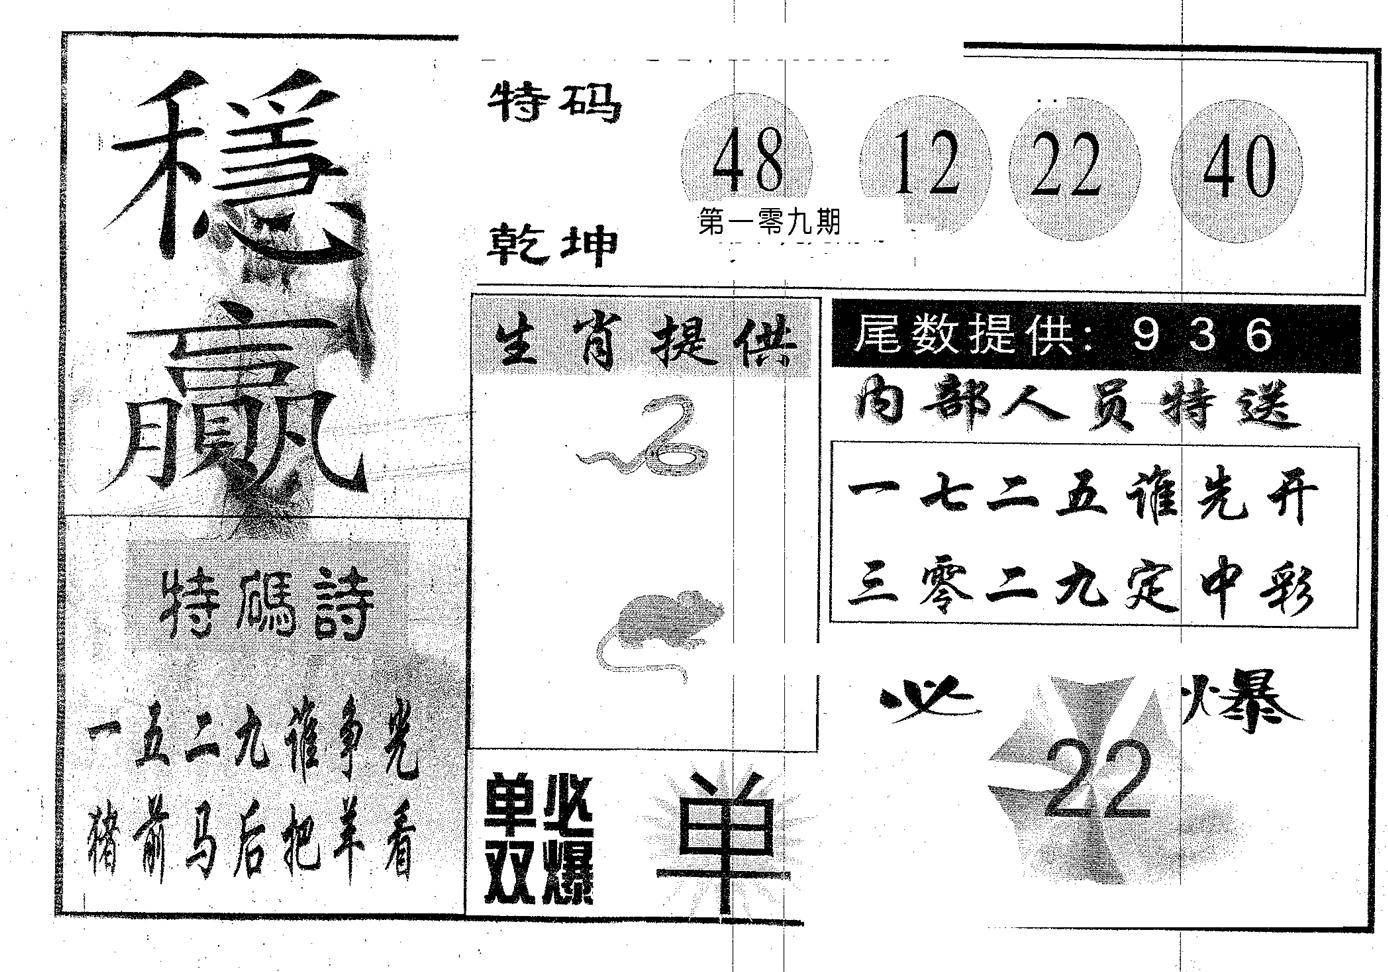 穩贏
特码
乾坤
48 12 22 40
第一零九期
生肖提供
尾数提供: 9 3 6
内部人员特送
一七二五谁先开
三零二九定中彩
特碼詩
一五二九谁争光
猪前马后把羊看
必爆
22
单双
必爆
单